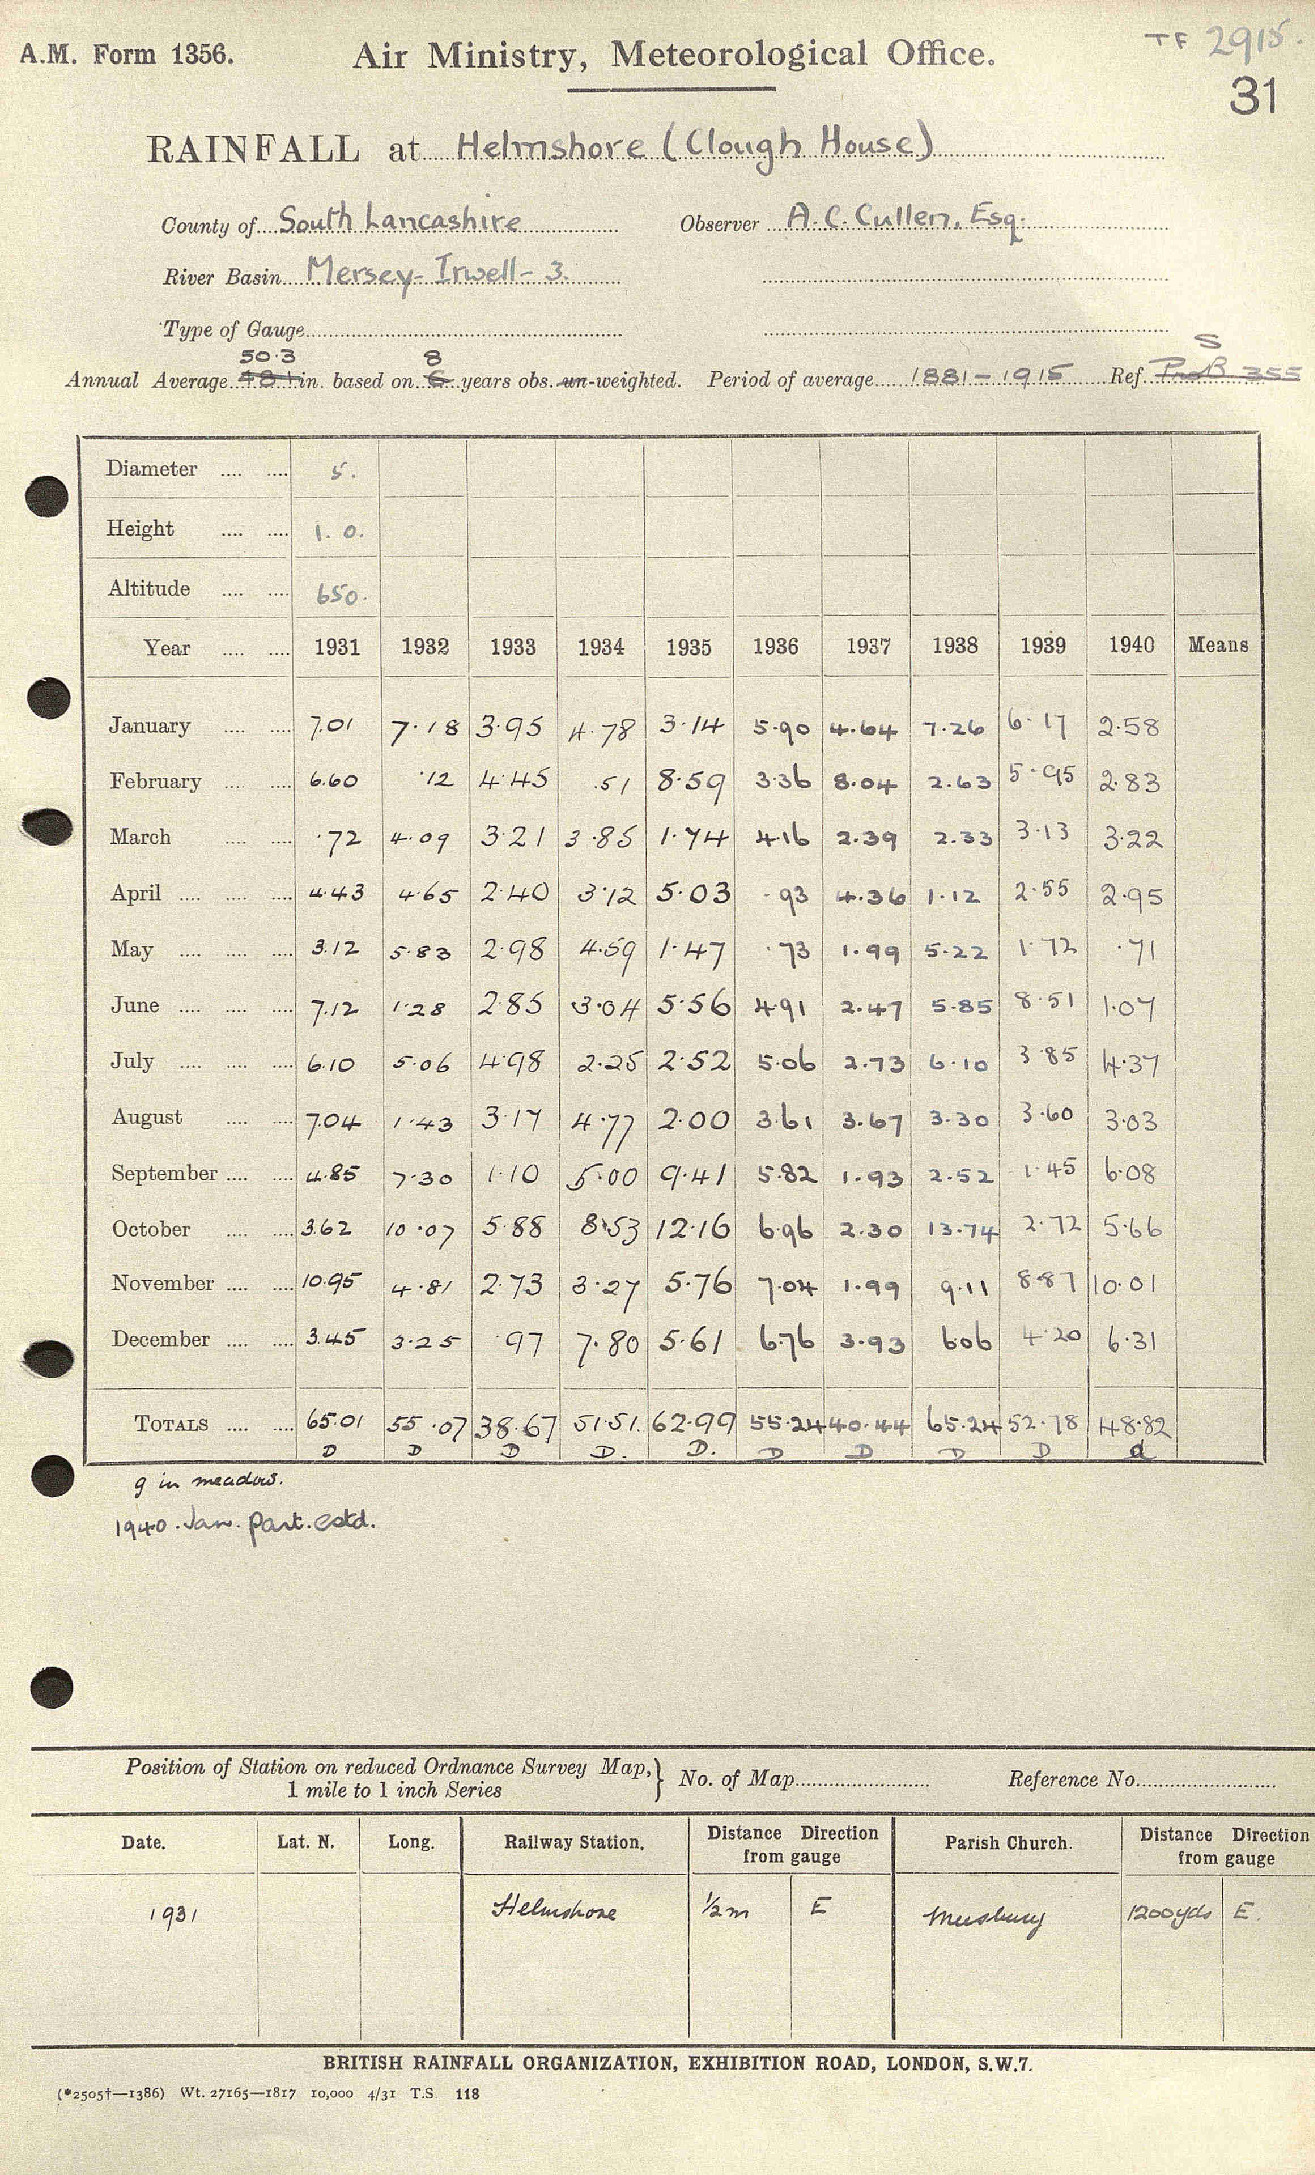 A.M. Form 1356. Air Ministry, Meteorological Office. TF 2915.
31
RAINFALL at Helmshore (Clough House)
County of South Lancashire Observer A.C. Cullen, Esq.
River Basin Mersey-Irwell-3.
Type of Gauge
50.3 8 S
Annual Average 48.1 in. based on 6 years obs. un-weighted. Period of average 1881-1915 Ref. Pro B 355
Diameter 5.
Height 1. 0.
Altitude 650.
Year 1931 1932 1933 1934 1935 1936 1937 1938 1939 1940 Means
January 7.01 7.18 3.95 4.78 3.14 5.90 4.64 7.26 6.17 2.58
February 6.60 .12 4.45 .51 8.59 3.36 8.04 2.63 5.95 2.83
March .72 4.09 3.21 3.85 1.74 4.16 2.39 2.33 3.13 3.22
April 4.43 4.65 2.40 3.12 5.03 .93 4.36 1.12 2.55 2.95
May 3.12 5.83 2.98 4.59 1.47 .73 1.99 5.22 1.72 .71
June 7.12 1.28 2.85 3.04 5.56 4.91 2.47 5.85 8.51 1.07
July 6.10 5.06 4.98 2.25 2.52 5.06 2.73 6.10 3.85 4.37
August 7.04 1.43 3.17 4.77 2.00 3.61 3.67 3.30 3.60 3.03
September 4.85 7.30 1.10 5.00 9.41 5.82 1.93 2.52 1.45 6.08
October 3.62 10.07 5.88 8.53 12.16 6.96 2.30 13.74 2.72 5.66
November 10.95 4.81 2.73 3.27 5.76 7.04 1.99 9.11 8.87 10.01
December 3.45 3.25 .97 7.80 5.61 6.76 3.93 6.06 4.20 6.31
TOTALS 65.01 55.07 38.67 51.51. 62.99 55.24 40.44 65.24 52.78 48.82
D D D D. D. D D D D d
g in meadows.
1940. Jan. part. estd.
Position of Station on reduced Ordnance Survey Map, } No. of Map Reference No.
1 mile to 1 inch Series
Date. Lat. N. Long. Railway Station. Distance Direction from gauge Parish Church. Distance Direction from gauge
1931 Helmshore 1/2 m E Musbury 1200 yds E.
BRITISH RAINFALL ORGANIZATION, EXHIBITION ROAD, LONDON, S.W.7.
(*2505†—1386) Wt. 27165—1817 10,000 4/31 T.S 118